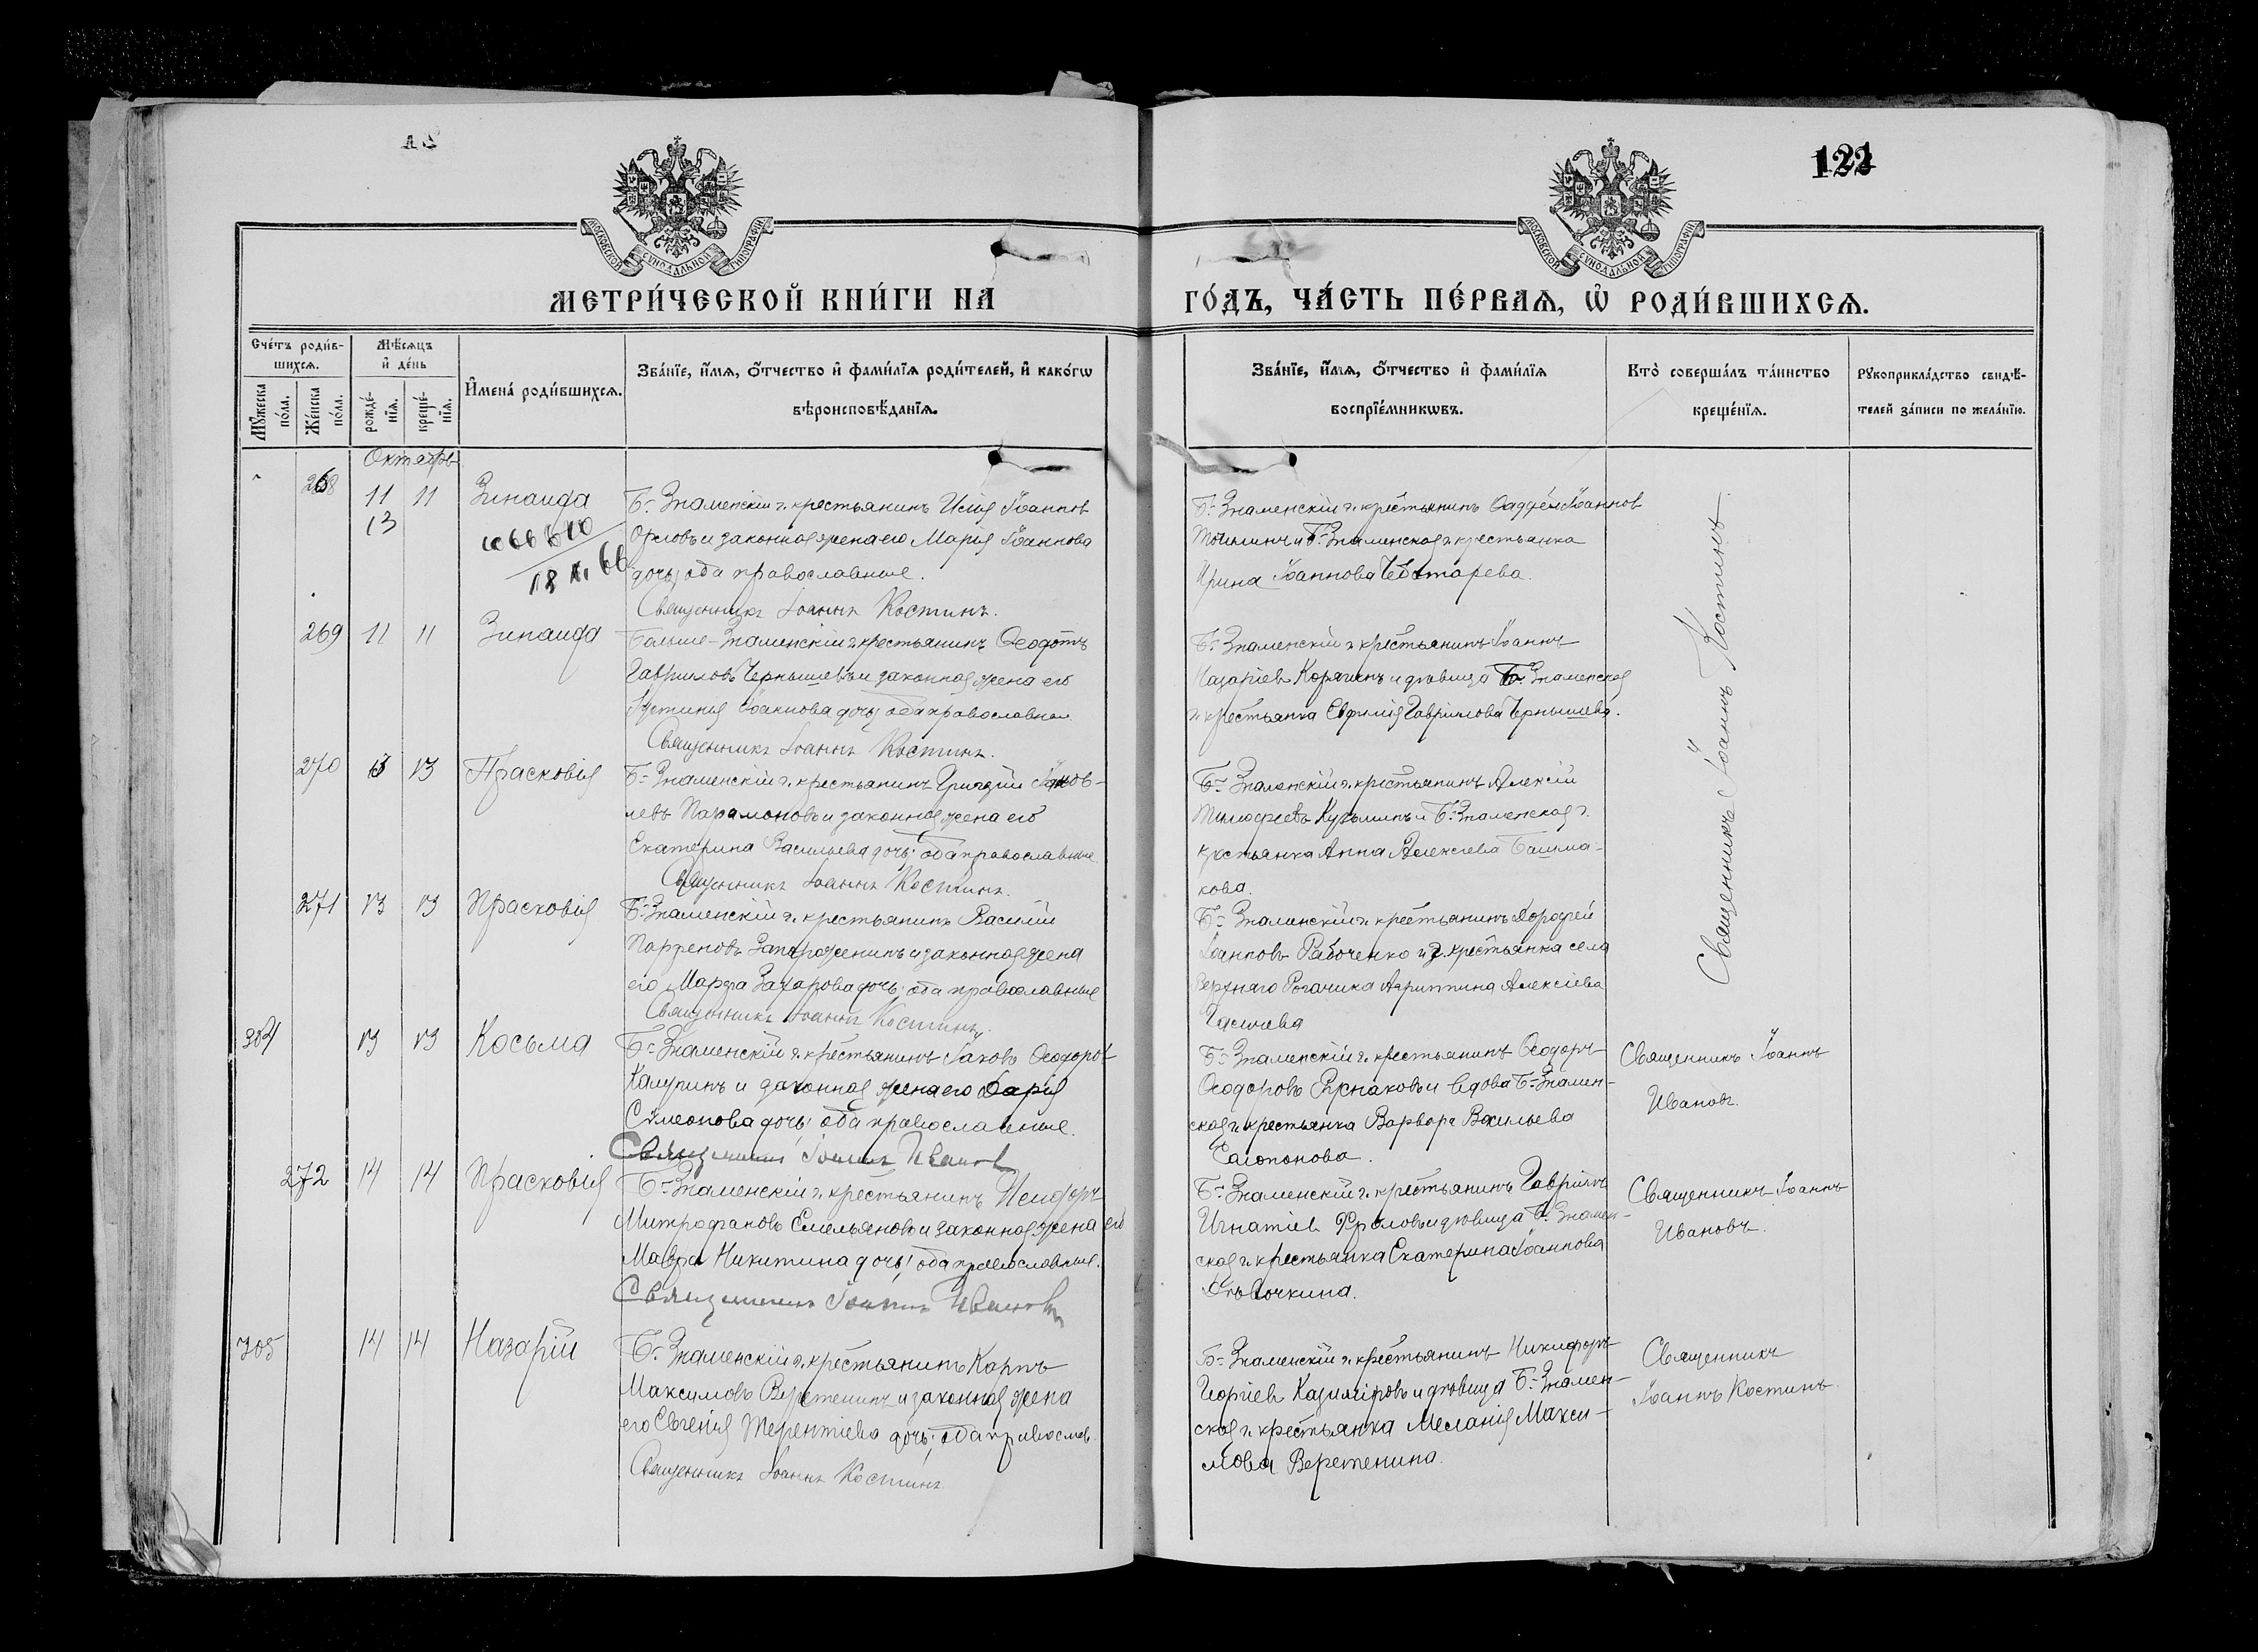 122
МОСКОВСКОЙ СУНОДАЛЬНОЙ ТИПОГРАФІИ
МОСКОВСКОЙ СУНОДАЛЬНОЙ ТИПОГРАФІИ
МЕТРИ́ЧЕСКОЙ КНИ́ГИ НА
ГО́ДЪ, ЧА́СТЬ ПЕ́РВАѦ, Ѡ҆ РОДИ́ВШИХСѦ.
Сче́тъ роди́в-
шихсѧ.
Мѣ́сѧцъ
и҆ де́нь
И҆мена̀ роди́вшихсѧ.
Зва́нїе, и҆́мѧ, ѻ҆́тчество и҆ фами́лїѧ роди́телей, и҆ како́гѡ
вѣроисповѣ́данїѧ.
Мꙋ́жеска
по́ла.
Же́нска
по́ла.
рожде́-
нїѧ.
креще́-
нїѧ.
Зва́нїе, и҆́мѧ, ѻ҆́тчество и҆ фами́лїѧ
воспрїе́мникѡвъ.
Кто̀ соверша́лъ та́инство
креще́нїѧ.
Рꙋкоприкла́дство свидѣ́-
телей за́писи по жела́нїю.
Октябрь
268 11 11 Зинаида
13
Б.-Знаменскій г. крестьянинъ Исаія Іоаннов
Орловъ и законная жена его Марія Іоаннова
дочь; оба православные.
Священникъ Іоаннъ Костинъ.
Б.-Знаменскій г. крестьянинъ Фаддей Іоаннов
и Б.-Знаменская г. крестьянка
Ирина Іоаннова Чеботарева.
269 11 11 Зинаида
Больше-Знаменскій г. крестьянинъ Ѳеодотъ
Гавриловъ Чернышевъ и законная жена его
Іустинія Іоаннова дочь; оба православные.
Священникъ Іоаннъ Костинъ.
Б.-Знаменскій г. крестьянинъ Іоаннъ
Назаріев Корягинъ и дѣвица Б.-Знаменская
г. крестьянка Евфимія Гаврилова Чернышева.
270 13 13 Прасковія
Б.-Знаменскій г. крестьянинъ Григорій Іаков-
левъ Парамоновъ и законная жена его
Екатерина Васильева дочь; оба православные.
Священникъ Іоаннъ Костинъ.
Б.-Знаменскій г. крестьянинъ Алексій
Тимофеевъ Кузьминъ и Б.-Знаменская г.
крестьянка Анна Алексіева Башма-
кова.
271 13 13 Прасковія
Б.-Знаменскій г. крестьянинъ Василій
Парфеновъ Запорожченинъ и законная жена
его Марфа Захарова дочь; оба православные
Священникъ Іоаннъ Костинъ.
Б.-Знаменскій г. крестьянинъ Дорофей
Іоаннов Рабоченко и г. крестьянка села
Верхняго Рогачика Агриппина Алексіева
Священникъ Іоаннъ Костинъ.
304 13 13 Косьма
Б.-Знаменскій г. крестьянинъ Іаковъ Ѳеодоров
и законная жена его Дарія
Симеонова дочь; оба православные.
Священникъ Іоаннъ Ивановъ
Б.-Знаменскій г. крестьянинъ Ѳеодоръ
Ѳеодоровъ Руснаковъ и вдова Б.-Знамен-
ская г. крестьянка Варвара Васильева
Сапонова.
Священникъ Іоаннъ
Ивановъ.
272 14 14 Прасковія
Б.-Знаменскій г. крестьянинъ Исидоръ
Митрофановъ Емельяновъ и законная жена его
Мавра Никитина дочь; оба православные.
Священникъ Іоаннъ Ивановъ
Б.-Знаменскій г. крестьянинъ Гавріилъ
Игнатіев Фроловъ и дѣвица Б.-Знамен-
ская г. крестьянка Екатерина Іоаннова
Дѣвочкина.
Священникъ Іоаннъ
Ивановъ.
305 14 14 Назарій
Б.-Знаменскій г. крестьянинъ Карпъ
Максимовъ Веретенинъ и законная жена
его Евгенія Терентіева дочь; оба православ.
Священникъ Іоаннъ Костинъ
Б.-Знаменскій г. крестьянинъ Никифоръ
Георгіев Казиміровъ и дѣвица Б.-Знамен-
ская г. крестьянка Меланія Макси-
мова Веретенина.
Священникъ
Іоаннъ Костинъ.